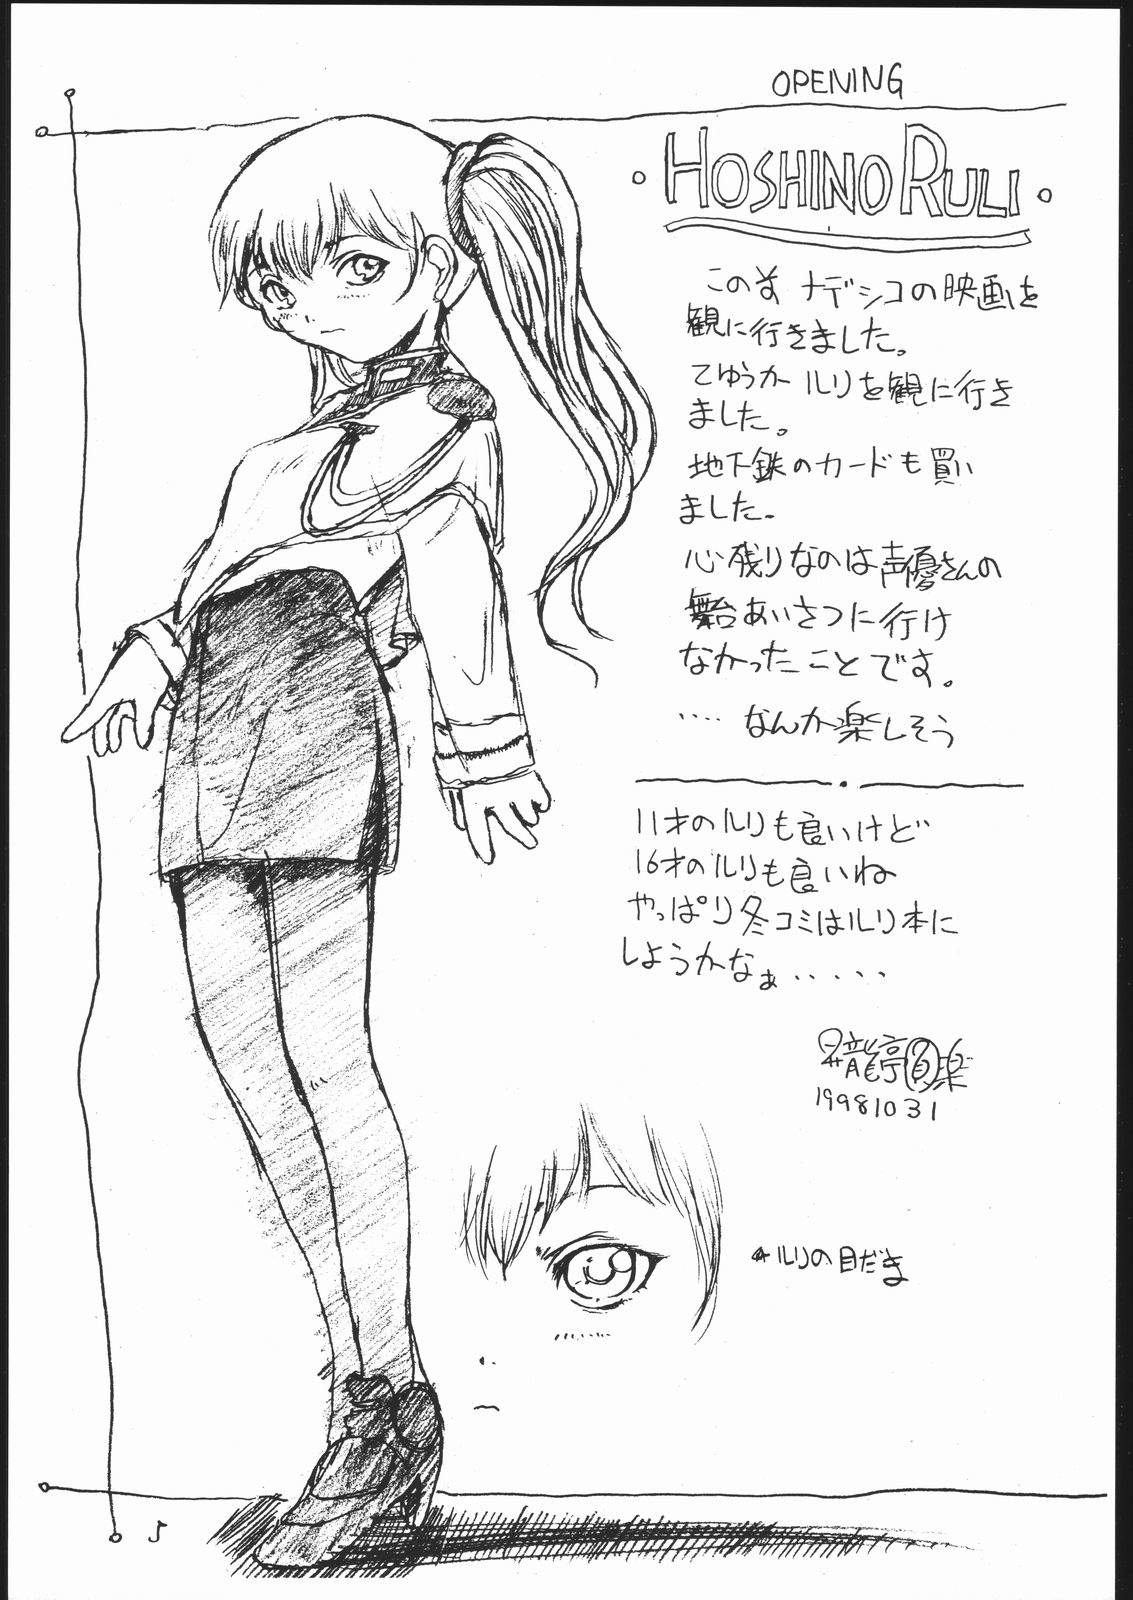 OPENING
HOSHINO RULI
このまえ ナデシコの映画を
観に行きました。
てゆうか ルリを観に行き
ました。
地下鉄のカードも買い
ました。
心残りなのは声優さんの
舞台あいさつに行け
なかったことです。
‥‥ なんか楽しそう
11才のルリも良いけど
16才のルリも良いね
やっぱり冬コミはルリ本に
しようかなぁ‥‥‥
龍亭円楽
19981031
ルリの目だま
5